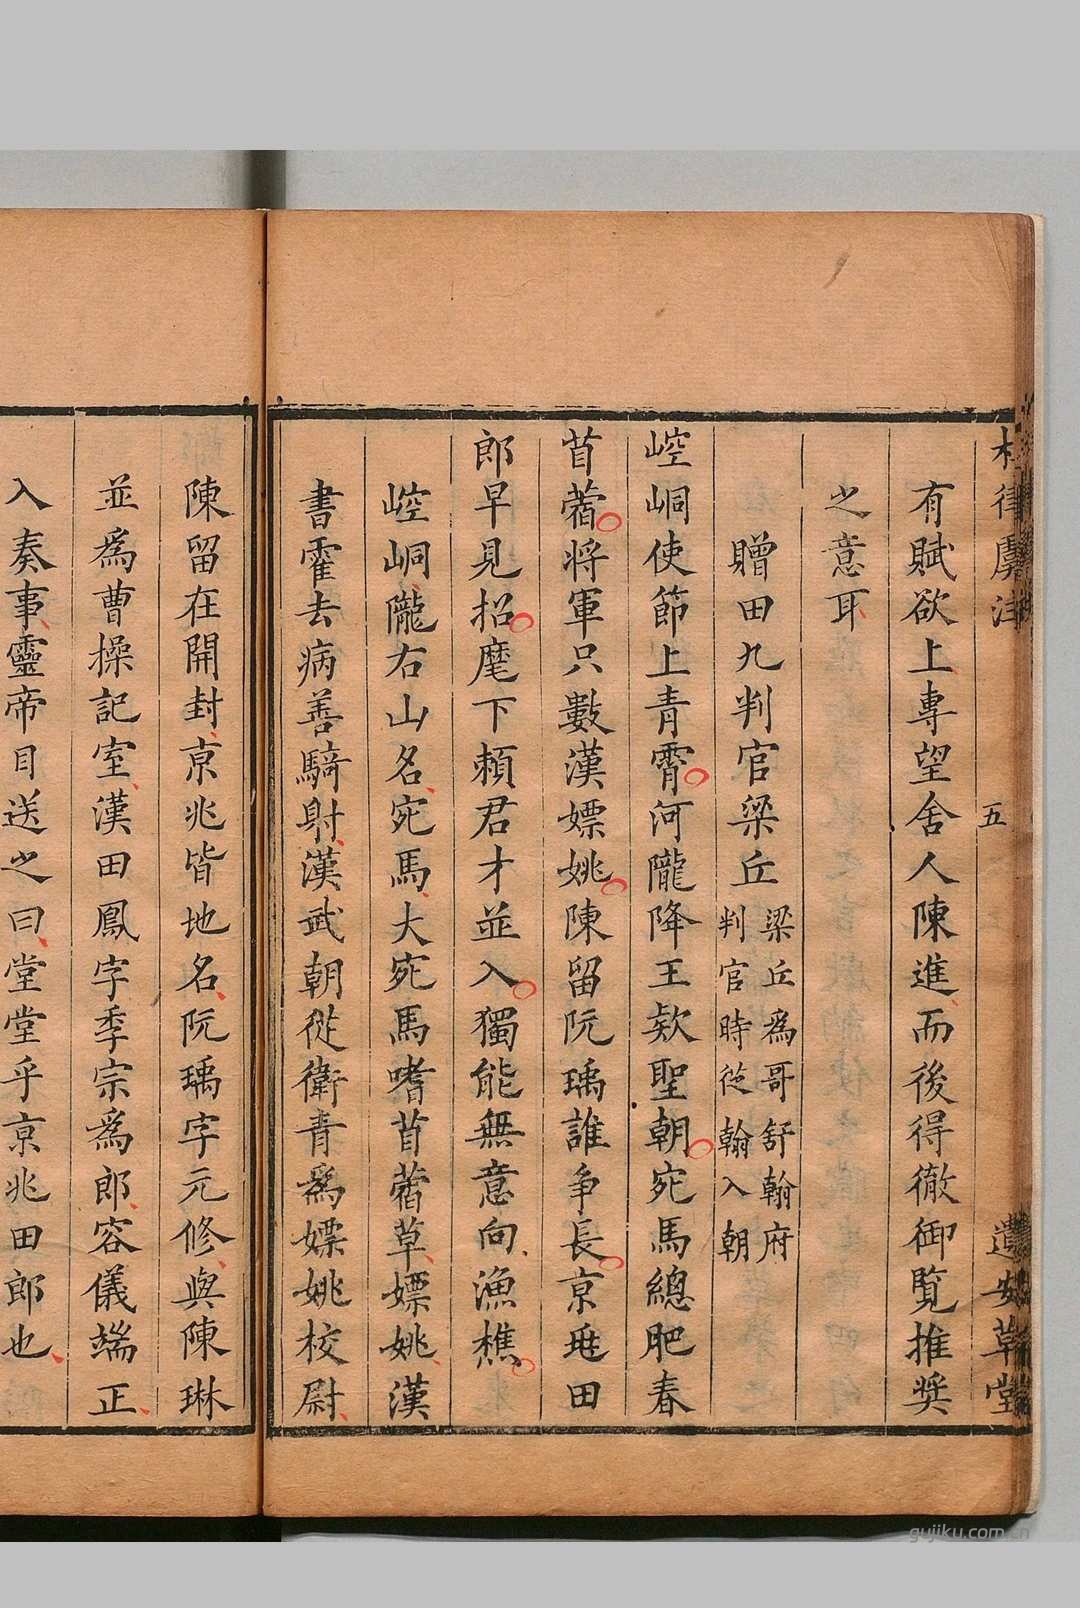 杜律虞註 五 遺安草堂
有賦欲上專望舍人陳進而後得徹御覧推奨
之意耳
贈田九判官梁丘 梁丘爲哥舒翰府
判官時從翰入朝
崆峒使節上青霄河隴降王欵聖朝宛馬總肥春
苜蓿將軍只數漢嫖姚陳留阮瑀誰爭長京兆田
郎早見招麾下頼君才並入獨能無意向漁樵
崆峒隴右山名宛馬大宛馬嗜苜蓿草嫖姚漢
書霍去病善騎射漢武朝從衛青爲嫖姚校尉
陳留在開封京兆皆地名阮瑀字元修與陳琳
並爲曹操記室漢田鳳字季宗爲郎容儀端正
入奏事靈帝目送之曰堂堂乎京兆田郎也
gujiku.com.cn